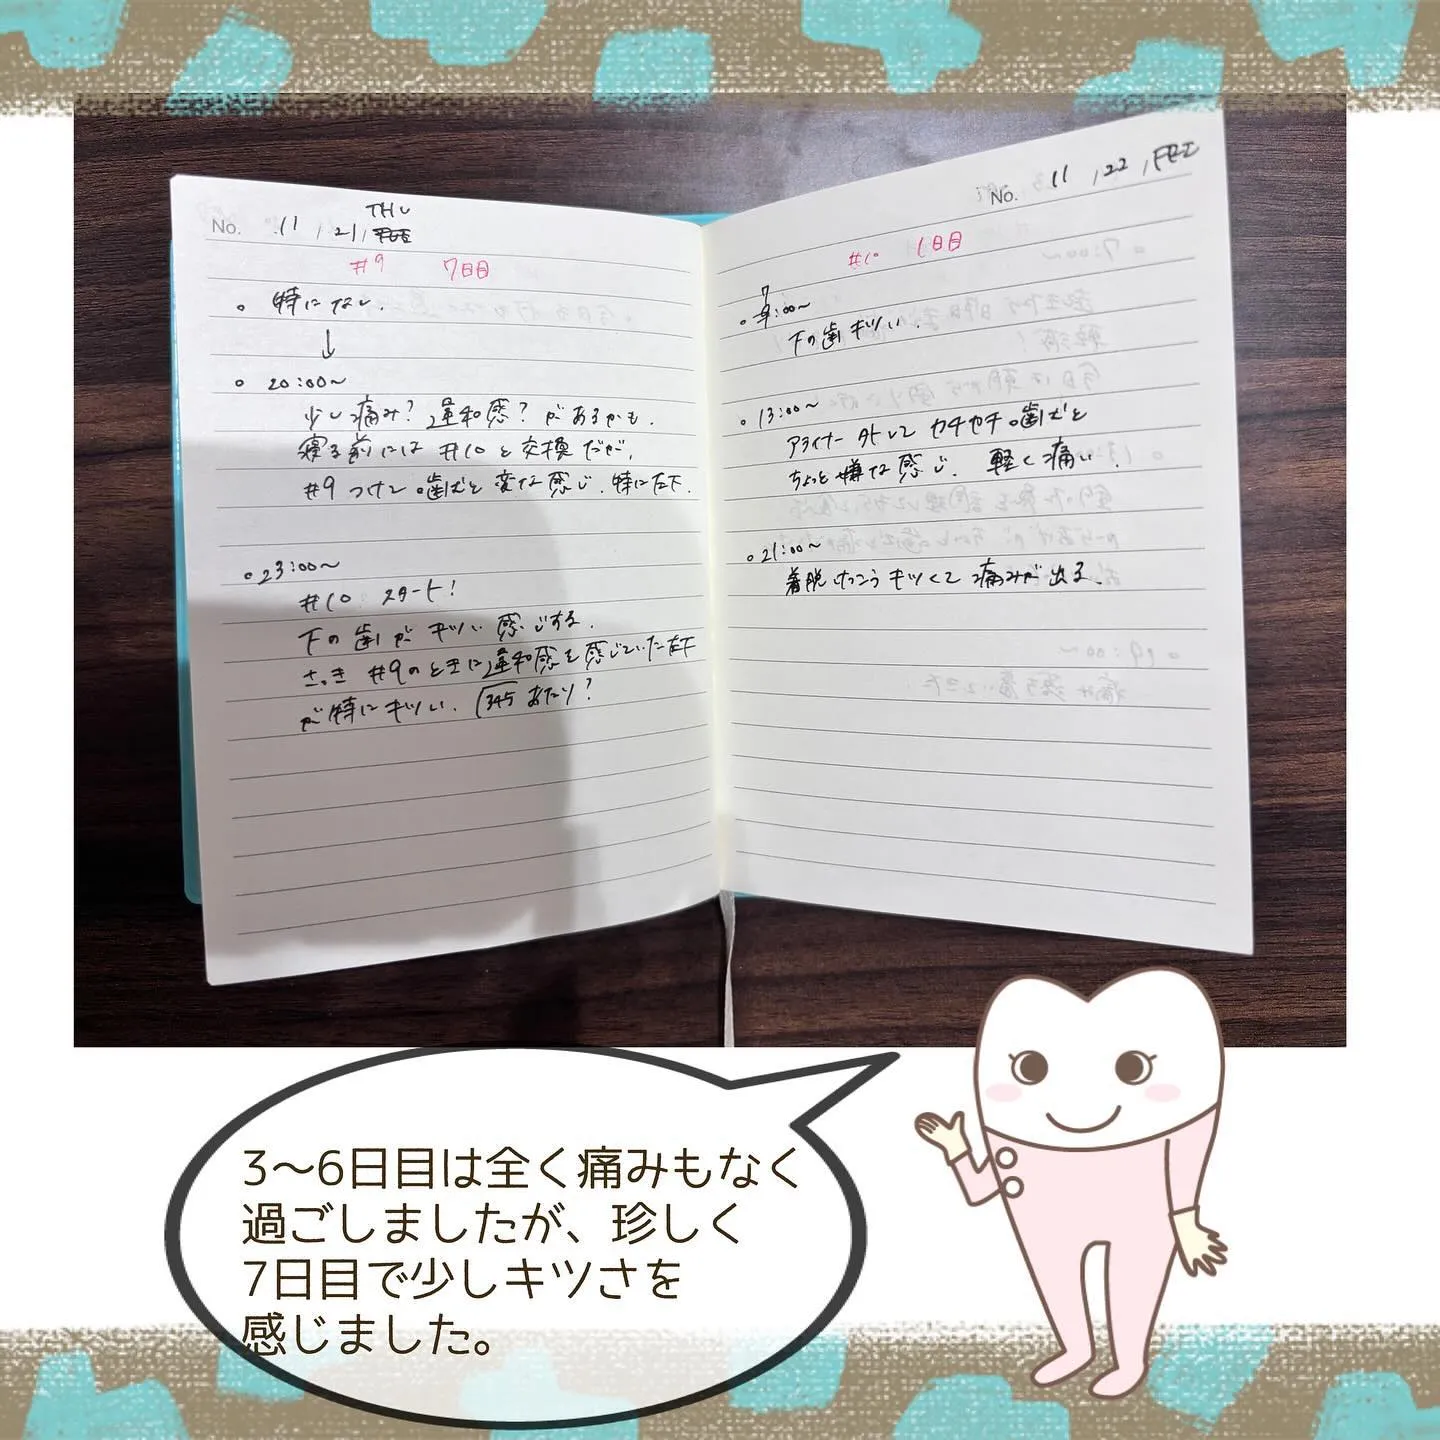 No. 11, 21, THU
#9 7日目
。特になし.
↓
。20:00〜
少し痛み?違和感?があるかも.
寝る前には#10と交換だが,
#9つけて歯だと変な感じ.特に左下.
。23:00〜
#10 スタート!
下の歯がキツい感じする.
さっき#9のときに違和感を感じていた左下
が特にキツい. 345あたり?
No. 11, 22, FRI
#10 1日目
。7:00〜
下の歯キツい.
。13:00〜
アライナー外してカチカチ
ちょっと嫌な感じ.軽く痛い.
。21:00〜
着脱けっこうキツくて痛みが出る.
3〜6日目は全く痛みもなく
過ごしましたが、珍しく
7日目で少しキツさを
感じました。